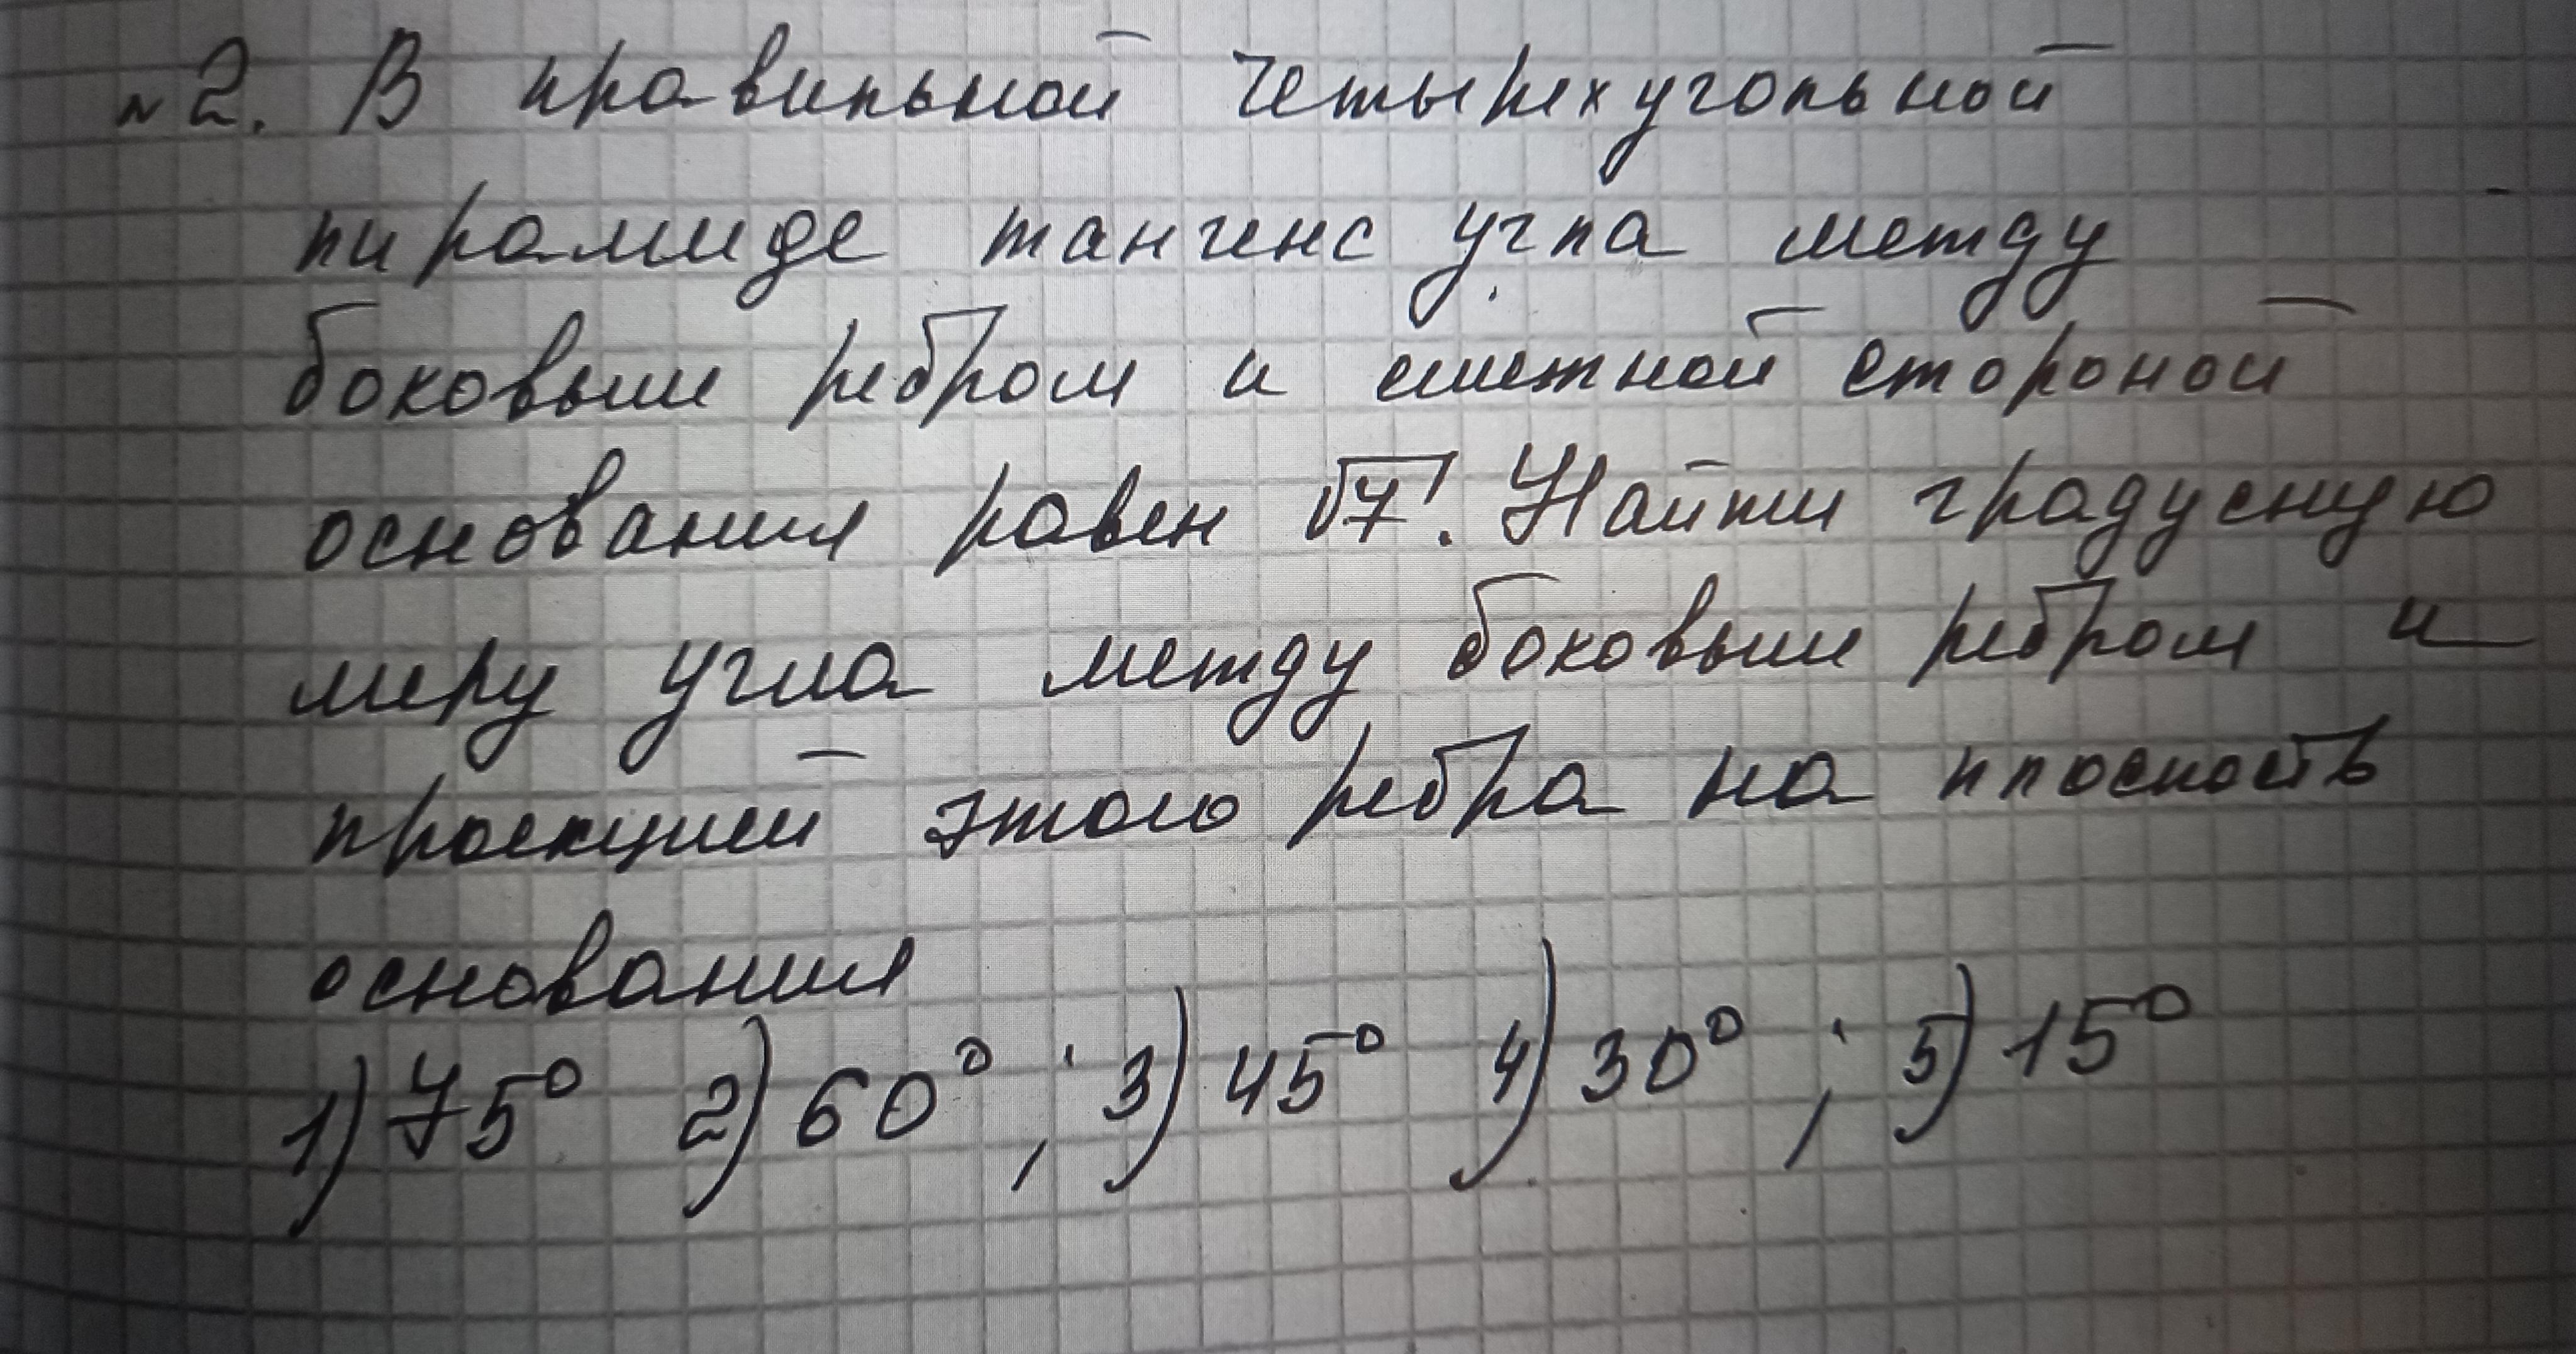 №2. В правильной четырехугольной
пирамиде тангенс угла между
боковым ребром и смежной стороной
основания равен √7. Найти градусную
меру угла между боковым ребром и
проекцией этого ребра на плоскость
основания
1) 75° 2) 60° ; 3) 45° 4) 30° ; 5) 15°